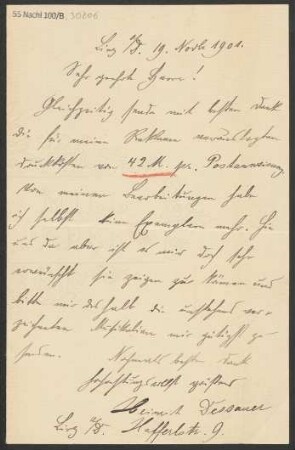 55 Nachl 100/B
Linz a/D. 19. Novb 1901.
Sehr geehrte Herren!
Gleichzeitig sende mit bestem Dank
die für meine Reklame
Druckkosten von 42 M. per Postanweisung
Von meinen Bearbeitungen habe
ich selbst kein Exemplar mehr. Hie
und da aber ist es mir doch sehr
erwünscht sie zeigen zu können und
bitte mir deshalb die umstehend ver-
zeichneten Musikalien mir gütigst zu
senden.
Nochmals besten Dank
hochachtungsvollst
Heinrich Dessauer
Linz a/D. Hafferlstr. 9.